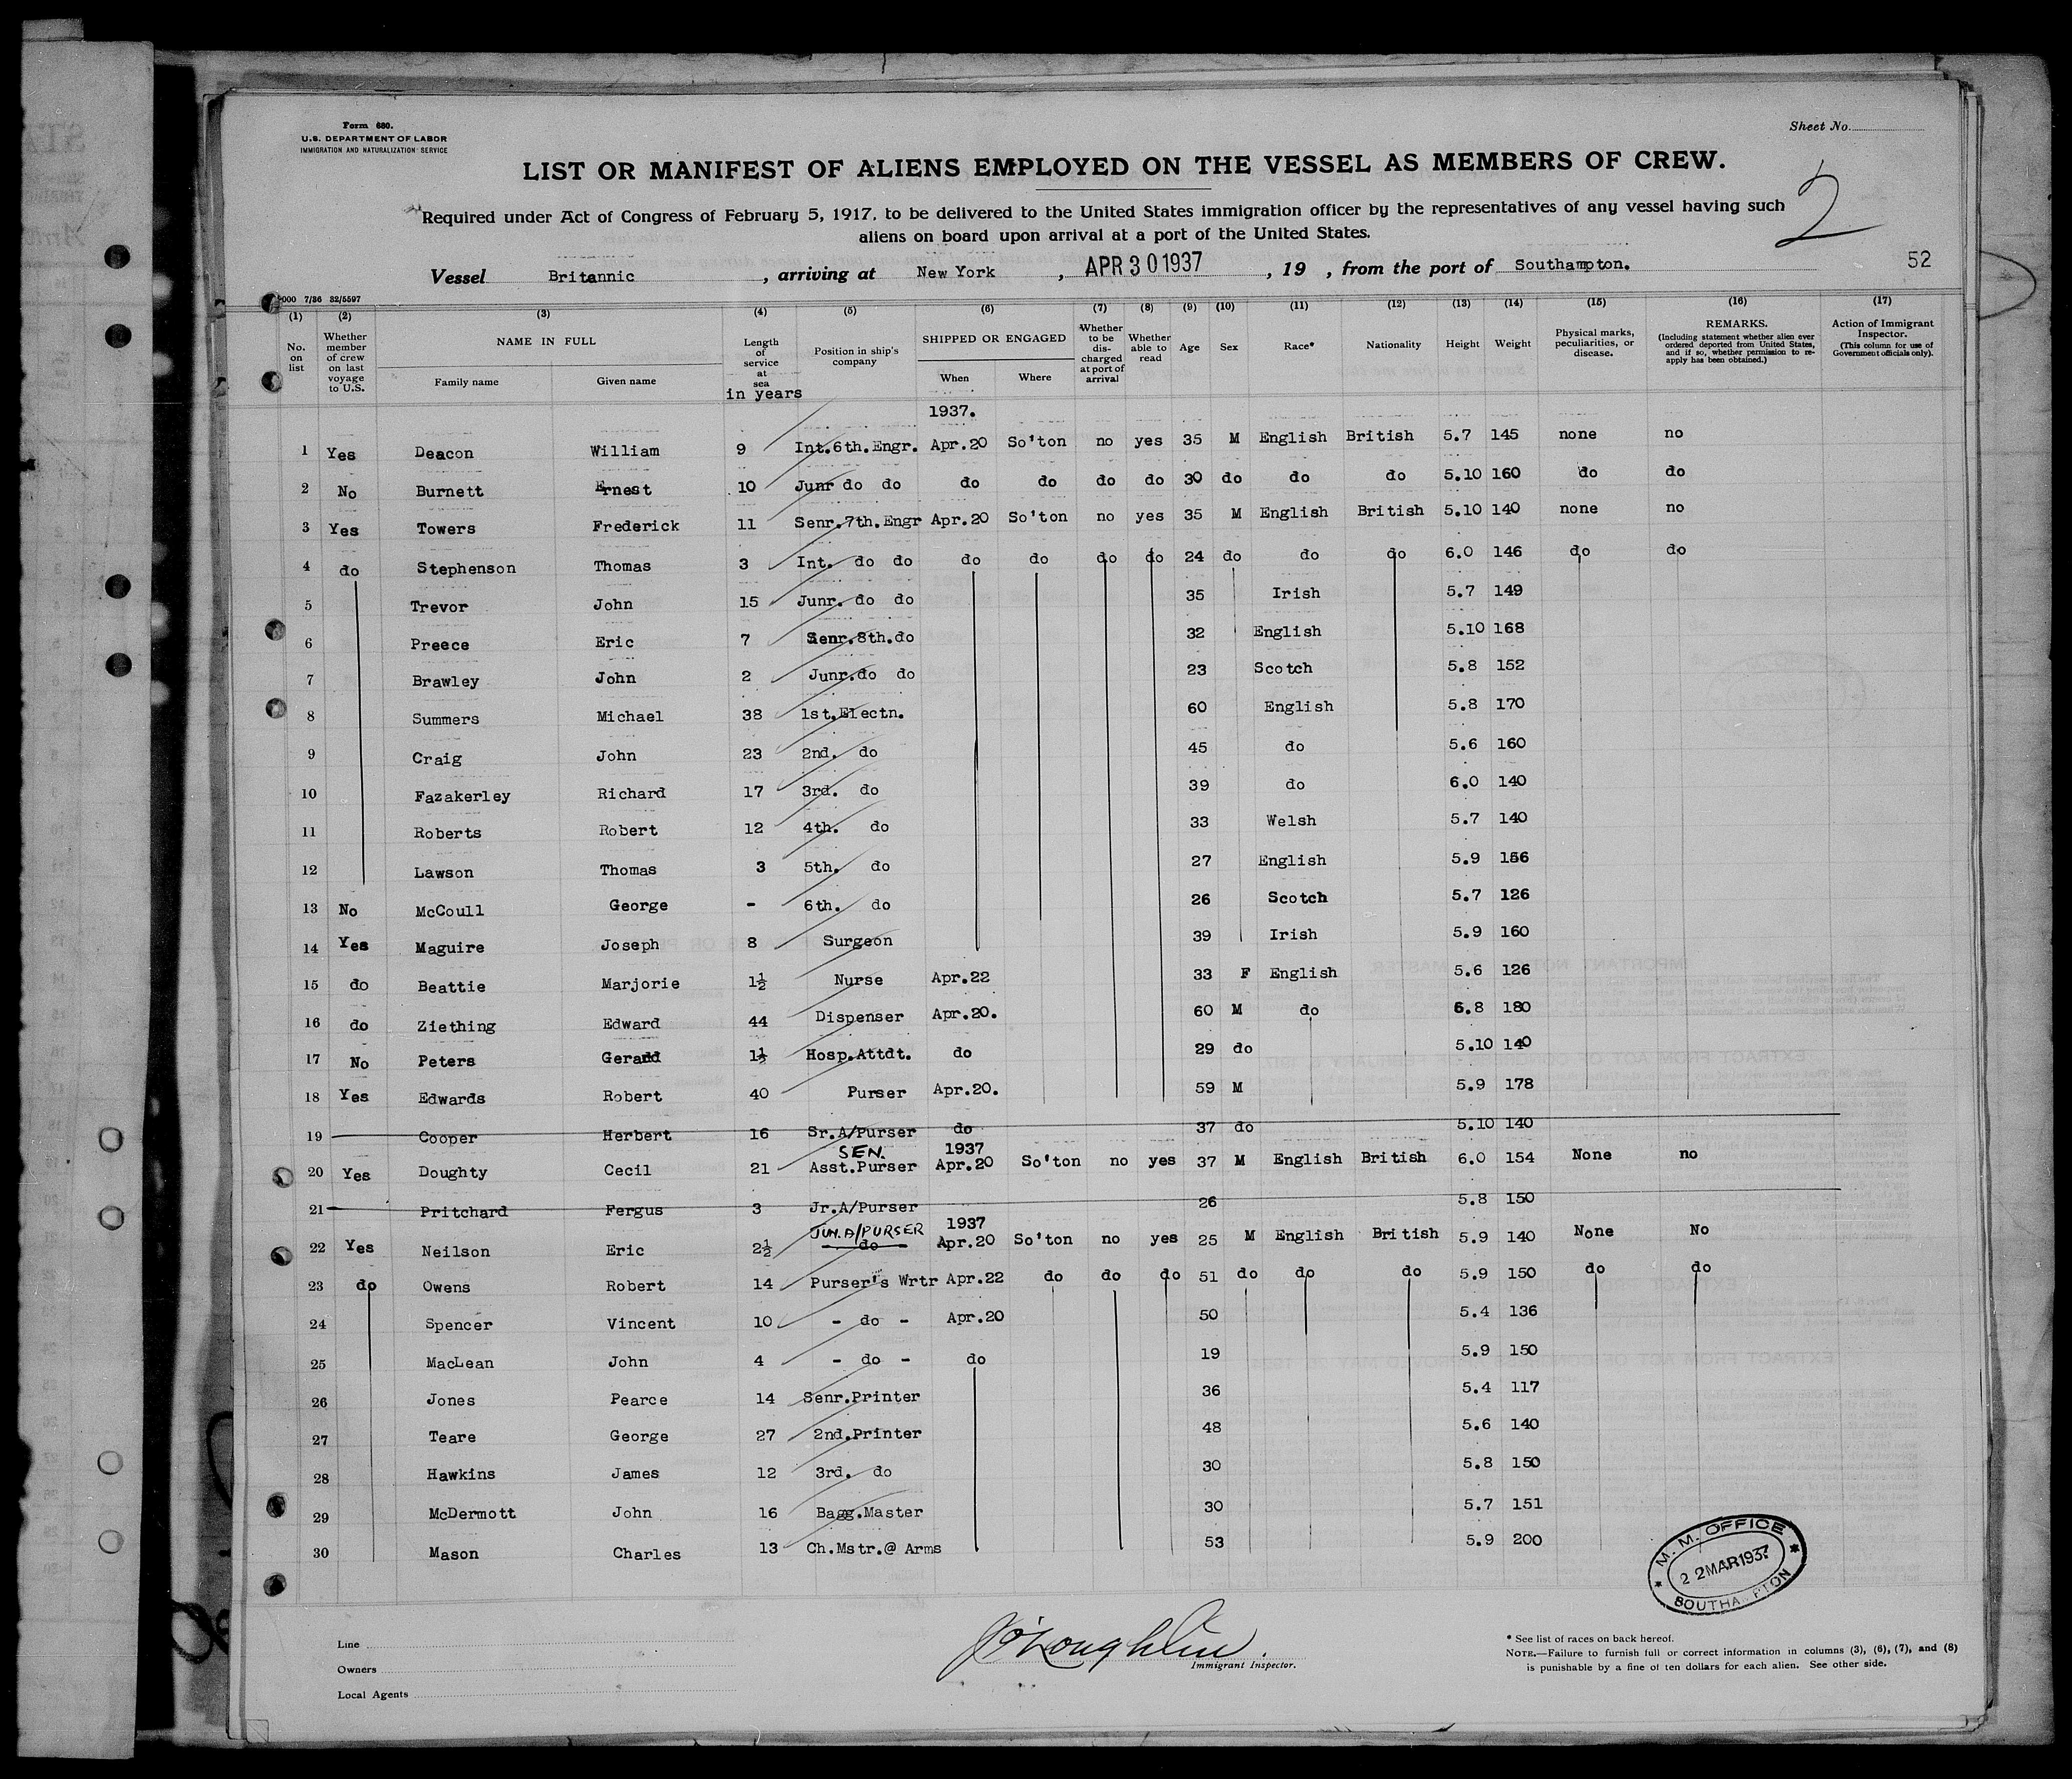 Form 680.
U.S. DEPARTMENT OF LABOR
IMMIGRATION AND NATURALIZATION SERVICE
Sheet No.
LIST OR MANIFEST OF ALIENS EMPLOYED ON THE VESSEL AS MEMBERS OF CREW.
2
Required under Act of Congress of February 5, 1917, to be delivered to the United States immigration officer by the representatives of any vessel having such
aliens on board upon arrival at a port of the United States.
52
Vessel Britannic , arriving at New York , APR 30 1937 , 19 , from the port of Southampton.
000 7/36 32/5597
(1) (2) (3) (4) (5) (6) (7) (8) (9) (10) (11) (12) (13) (14) (15) (16) (17)
No. on list
Whether member of crew on last voyage to U.S.
NAME IN FULL
Family name Given name
Length of service at sea in years
Position in ship's company
SHIPPED OR ENGAGED
When Where
Whether to be discharged at port of arrival
Whether able to read
Age Sex Race* Nationality Height Weight
Physical marks, peculiarities, or disease.
REMARKS.
(Including statement whether alien ever ordered deported from United States, and if so, whether permission to reapply has been obtained.)
Action of Immigrant Inspector.
(This column for use of Government officials only).
1937.
1 Yes Deacon William 9 Int.6th.Engr. Apr.20 So'ton no yes 35 M English British 5.7 145 none no
2 No Burnett Ernest 10 Junr do do do do do do 30 do do do 5.10 160 do do
3 Yes Towers Frederick 11 Senr.7th.Engr Apr.20 So'ton no yes 35 M English British 5.10 140 none no
4 do Stephenson Thomas 3 Int. do do do do do do 24 do do do 6.0 146 do do
5 Trevor John 15 Junr. do do 35 Irish 5.7 149
6 Preece Eric 7 Senr.8th.do 32 English 5.10 168
7 Brawley John 2 Junr.do do 23 Scotch 5.8 152
8 Summers Michael 38 1st.Electn. 60 English 5.8 170
9 Craig John 23 2nd. do 45 do 5.6 160
10 Fazakerley Richard 17 3rd. do 39 do 6.0 140
11 Roberts Robert 12 4th. do 33 Welsh 5.7 140
12 Lawson Thomas 3 5th. do 27 English 5.9 156
13 No McCoull George - 6th. do 26 Scotch 5.7 126
14 Yes Maguire Joseph 8 Surgeon 39 Irish 5.9 160
15 do Beattie Marjorie 1½ Nurse Apr.22 33 F English 5.6 126
16 do Ziething Edward 44 Dispenser Apr.20. 60 M do 5.8 180
17 No Peters Gerard 1½ Hosp.Attdt. do 29 do 5.10 140
18 Yes Edwards Robert 40 Purser Apr.20. 59 M 5.9 178
19 Cooper Herbert 16 Sr.A/Purser do 37 do 5.10 140
SEN. 1937
20 Yes Doughty Cecil 21 Asst.Purser Apr.20 So'ton no yes 37 M English British 6.0 154 None no
21 Pritchard Fergus 3 Jr.A/Purser 26 5.8 150
JUN.A/PURSER 1937
22 Yes Neilson Eric 2½ do Apr.20 So'ton no yes 25 M English British 5.9 140 None No
23 do Owens Robert 14 Purser's Wrtr Apr.22 do do do 51 do do do 5.9 150 do do
24 Spencer Vincent 10 - do - Apr.20 50 5.4 136
25 MacLean John 4 - do - do 19 5.9 150
26 Jones Pearce 14 Senr.Printer 36 5.4 117
27 Teare George 27 2nd.Printer 48 5.6 140
28 Hawkins James 12 3rd. do 30 5.8 150
29 McDermott John 16 Bagg.Master 30 5.7 151
30 Mason Charles 13 Ch.Mstr.@ Arms 53 5.9 200
M. M. OFFICE
22 MAR 1937
Line
Owners
Local Agents
J O'Loughlin.
Immigrant Inspector.
* See list of races on back hereof.
NOTE.—Failure to furnish full or correct information in columns (3), (6), (7), and (8)
is punishable by a fine of ten dollars for each alien. See other side.